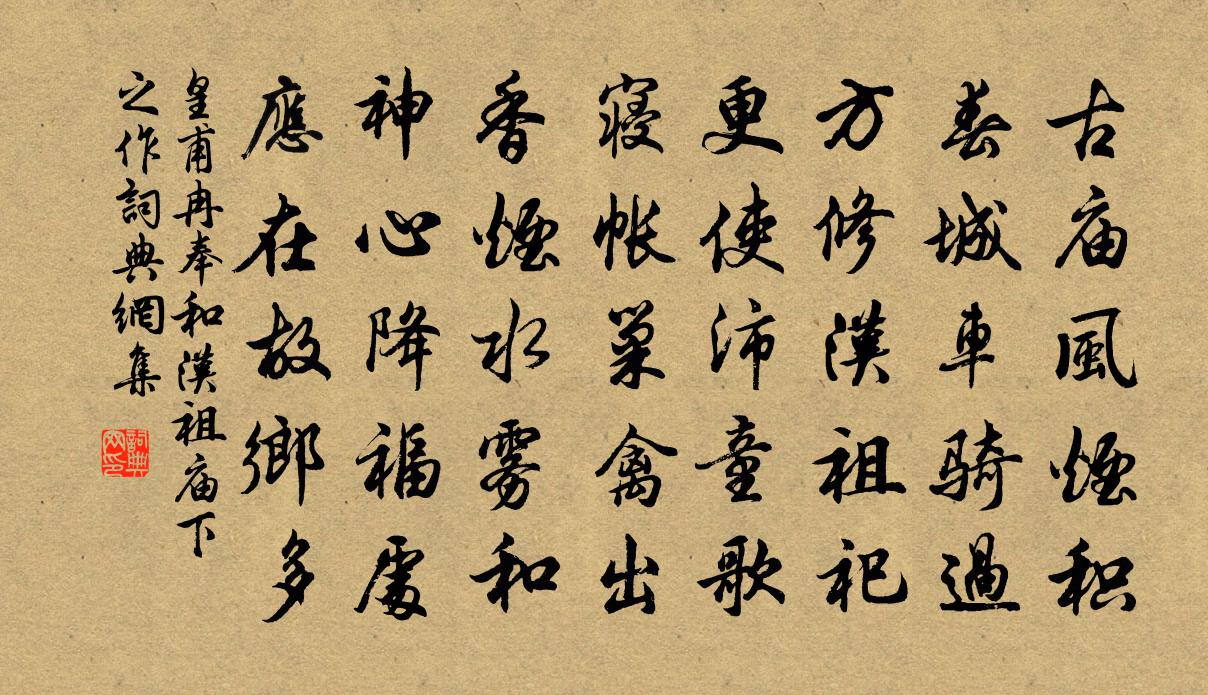 古庙風煙积
春城車騎過
方修漢祖祀
更使沛童歌
寝帐巢禽出
香煙水雾和
神心降福處
應在故鄉多
皇甫冉奉和漢祖庙下
之作詞典網集
詞典网印